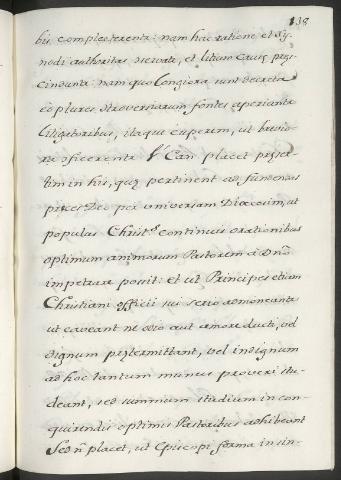 138
bis complecterentur: nam hac ratione et Sy-
nodi authoritas servatur, et litium causę pręs-
cinduntur: nam quo longiora sunt decreta
eo plures controversiarum fontes aperiuntur
Litigatoribus, itaque cuperem, ut brevio-
ra conficerentur. Can. placet pręser-
tim in his, quę pertinent ad fundendas
pręces Deo per universam Diœcesim, ut
populus Christ.s continuis orationibus
optimum animorum Pastorem à Dño
impetrare possit: et ut Principes etiam
Christiani officii sui serio admoneantur
ut caveant ne odio aut amore ducti, vel
dignum prętermittant, vel indignum
ad hoc tantum munus proveri stu-
deant, sed summum studium in con-
quirendis optimis Pastoribus adhibeant
Sed ñ placet, ut Episcopi forma in sin-